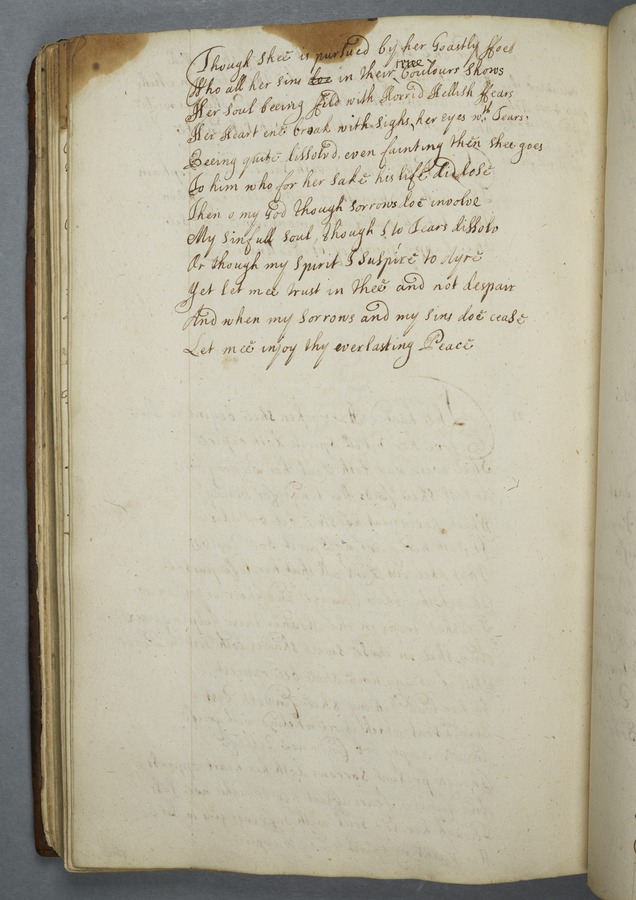 Though Shee is pursued by her Goastly ffoes
Who all her Sins doe in their true Coulours Shows
Her Soul beeing fild with Horrid Hellish ffears
Her Heart en'e break with sighs, her eyes wth Tears.
Beeing quite dissolvd, even fainting then shee goes
To him who for her Sake his life did lose
Then o my God though sorrows doe involve
My Sinfull Soul, though I to Tears dissolv
Or though my Spirit I Suspire to Ayre
Yet let mee trust in thee and not despair
And when my Sorrows and my Sins doe cease
Let mee injoy thy everlasting Peace